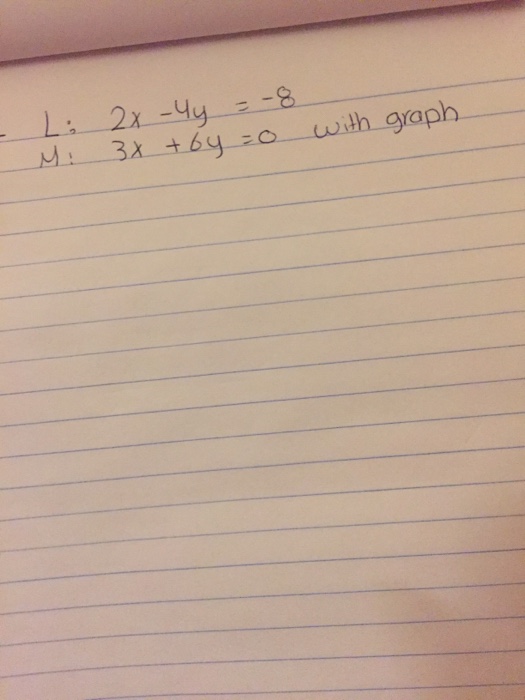 L: 2x - 4y = -8
M: 3x + 6y = 0 with graph